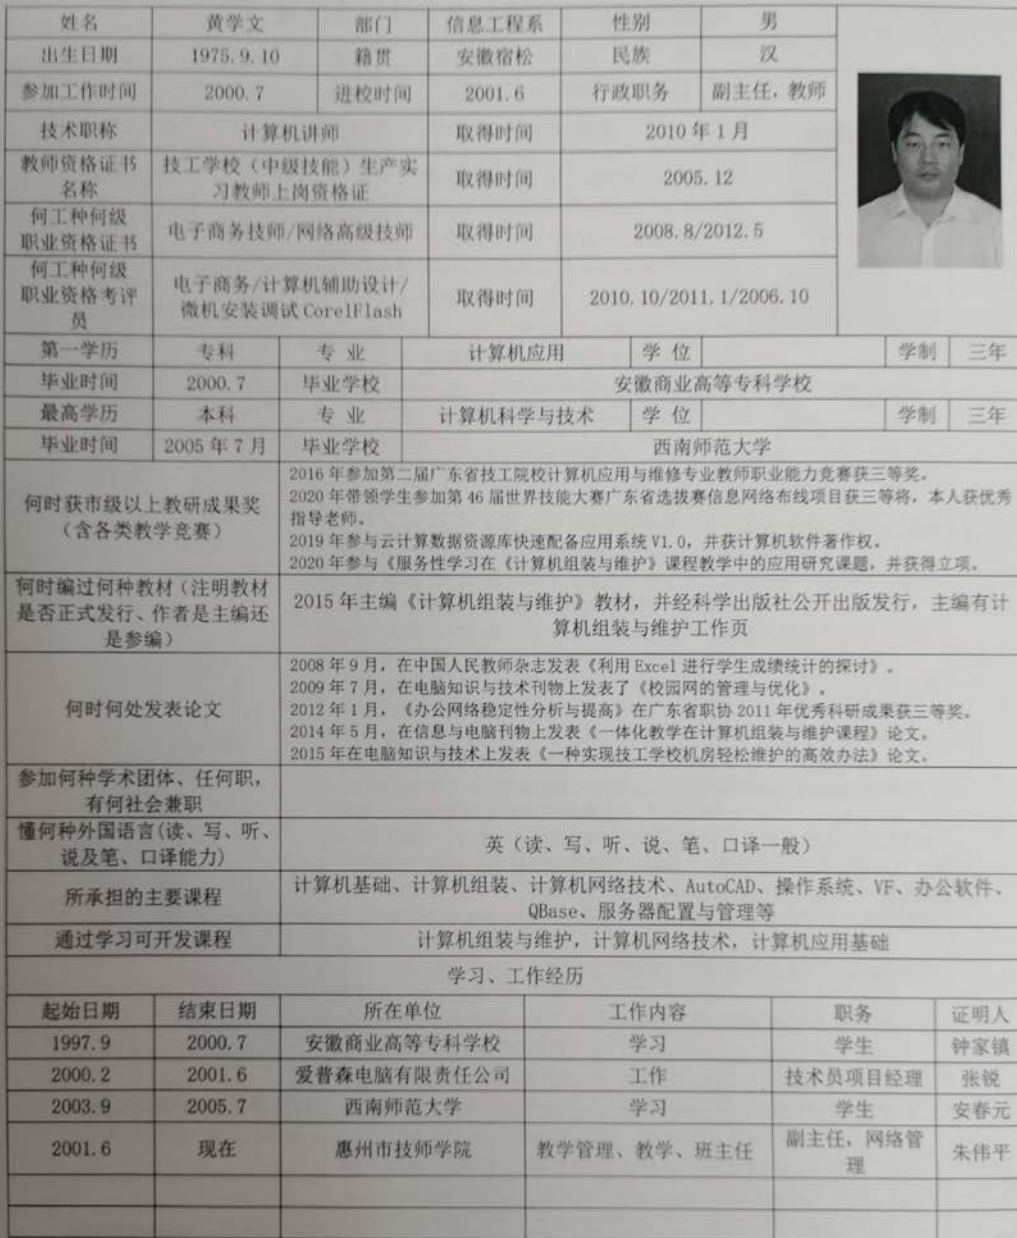 姓名 黄学文 部门 信息工程系 性别 男
出生日期 1975.9.10 籍贯 安徽宿松 民族 汉
参加工作时间 2000.7 进校时间 2001.6 行政职务 副主任,教师
技术职称 计算机讲师 取得时间 2010年1月
教师资格证书
名称
技工学校（中级技能）生产实
习教师上岗资格证
取得时间 2005.12
何工种何级
职业资格证书
电子商务技师/网络高级技师 取得时间 2008.8/2012.5
何工种何级
职业资格考评
员
电子商务/计算机辅助设计/
微机安装调试CorelFlash
取得时间 2010.10/2011.1/2006.10
第一学历 专科 专 业 计算机应用 学 位 学制 三年
毕业时间 2000.7 毕业学校 安徽商业高等专科学校
最高学历 本科 专 业 计算机科学与技术 学 位 学制 三年
毕业时间 2005年7月 毕业学校 西南师范大学
何时获市级以上教研成果奖
（含各类教学竞赛）
2016年参加第二届广东省技工院校计算机应用与维修专业教师职业能力竞赛获三等奖。
2020年带领学生参加第46届世界技能大赛广东省选拔赛信息网络布线项目获三等将，本人获优秀
指导老师。
2019年参与云计算数据资源库快速配备应用系统V1.0，并获计算机软件著作权。
2020年参与《服务性学习在《计算机组装与维护》课程教学中的应用研究课题，并获得立项。
何时编过何种教材（注明教材
是否正式发行、作者是主编还
是参编）
2015年主编《计算机组装与维护》教材，并经科学出版社公开出版发行，主编有计
算机组装与维护工作页
何时何处发表论文
2008年9月，在中国人民教师杂志发表《利用Excel进行学生成绩统计的探讨》。
2009年7月，在电脑知识与技术刊物上发表了《校园网的管理与优化》。
2012年1月，《办公网络稳定性分析与提高》在广东省职协2011年优秀科研成果获三等奖。
2014年5月，在信息与电脑刊物上发表《一体化教学在计算机组装与维护课程》论文。
2015年在电脑知识与技术上发表《一种实现技工学校机房轻松维护的高效办法》论文。
参加何种学术团体、任何职，
有何社会兼职
懂何种外国语言(读、写、听、
说及笔、口译能力)
英（读、写、听、说、笔、口译一般）
所承担的主要课程
计算机基础、计算机组装、计算机网络技术、AutoCAD、操作系统、VF、办公软件、
QBase、服务器配置与管理等
通过学习可开发课程 计算机组装与维护，计算机网络技术，计算机应用基础
学习、工作经历
起始日期 结束日期 所在单位 工作内容 职务 证明人
1997.9 2000.7 安徽商业高等专科学校 学习 学生 钟家镇
2000.2 2001.6 爱普森电脑有限责任公司 工作 技术员项目经理 张锐
2003.9 2005.7 西南师范大学 学习 学生 安春元
2001.6 现在 惠州市技师学院 教学管理、教学、班主任
副主任，网络管
理
朱伟平